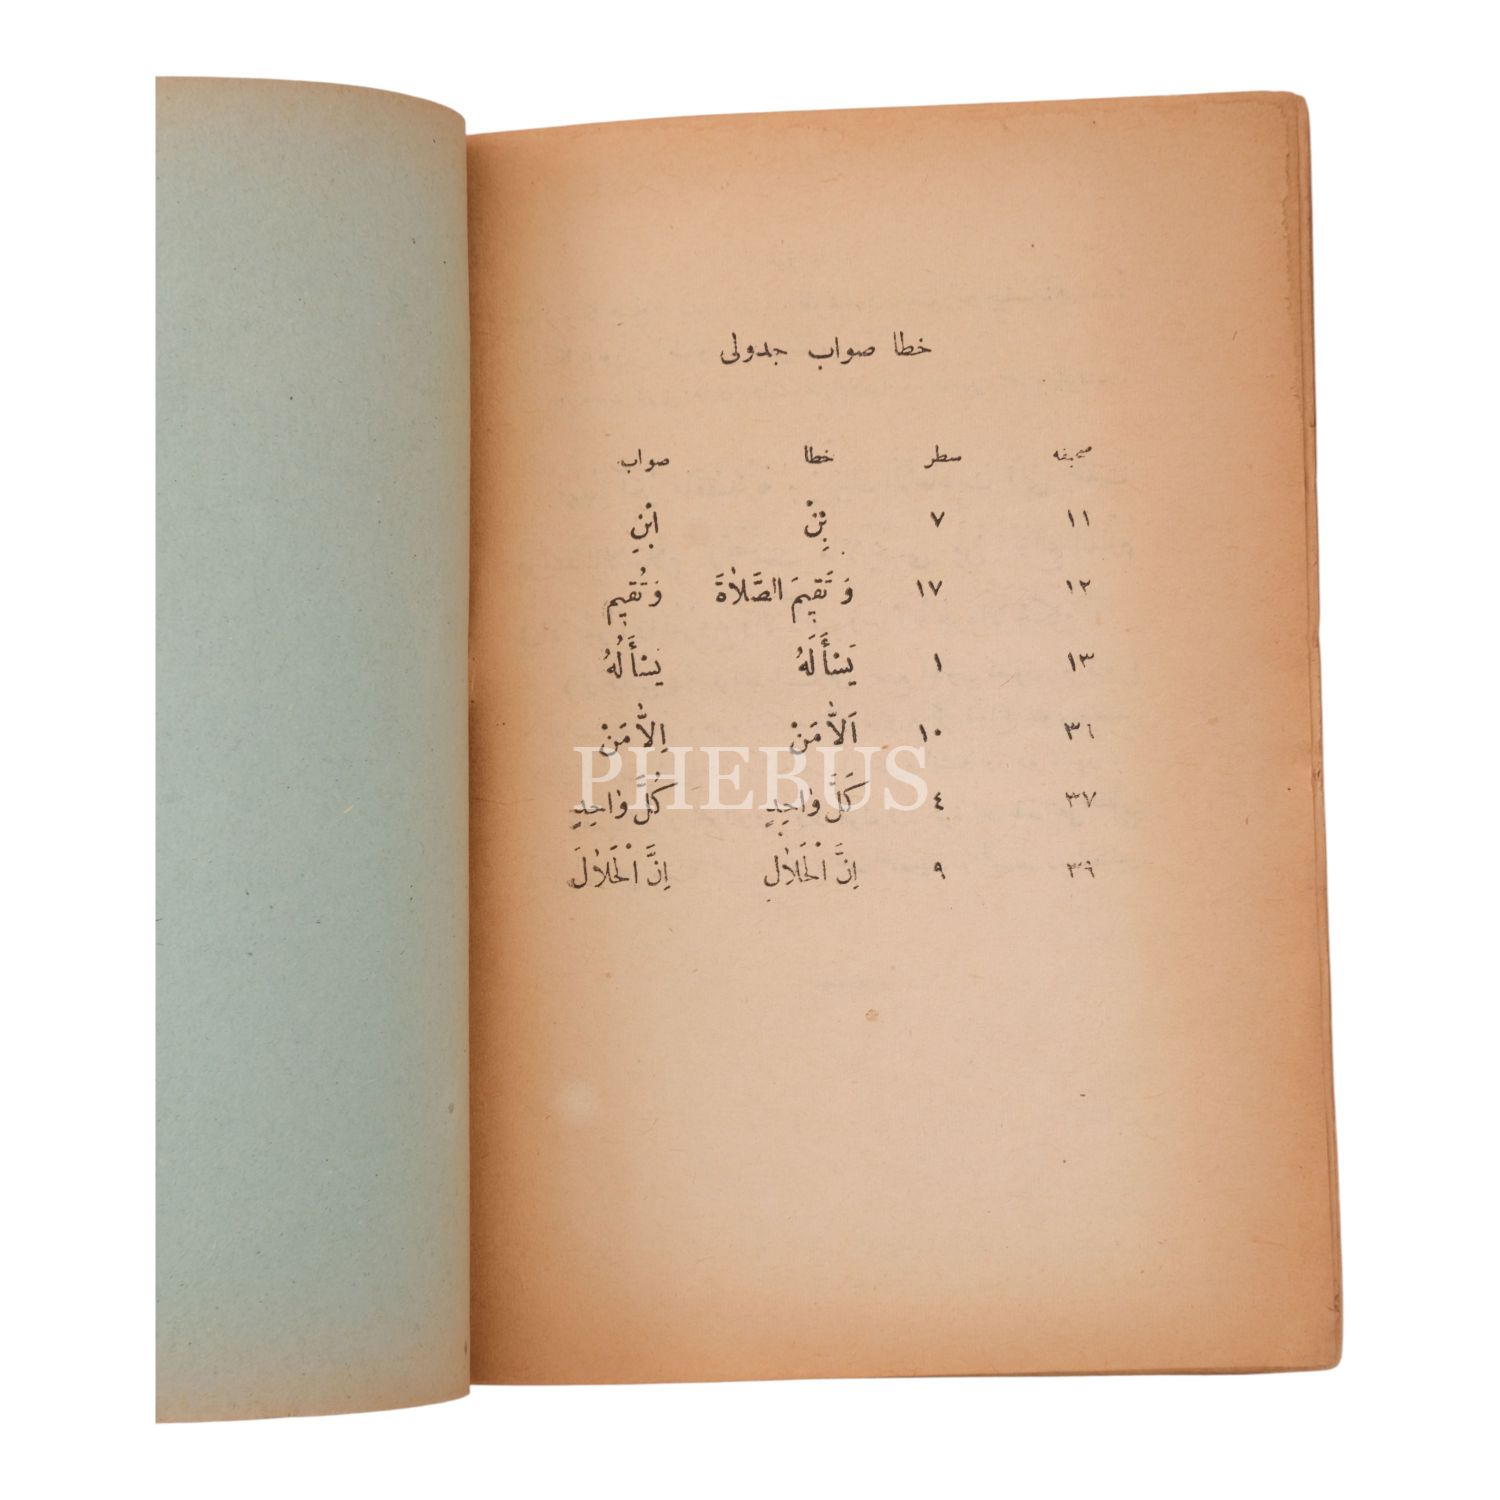 خطا صواب جدولی
صحیفه سطر خطا صواب
١١ ٧ بِنْ ابْنِ
١٢ ١٧ وَتَقِيمَ الصَّلاٰةَ وَتُقِيمِ
١٣ ١ يَسْأَلَهُ يَسْأَلُهُ
٣٦ ١٠ اَلاَّ مَنْ اِلاَّ مَنْ
٣٧ ٤ كَلَّ وٰاحِدٍ كُلَّ وٰاحِدٍ
٣٩ ٩ اِنَّ الْحَلاٰلِ اِنَّ الْحَلاٰلَ
PHEBUS